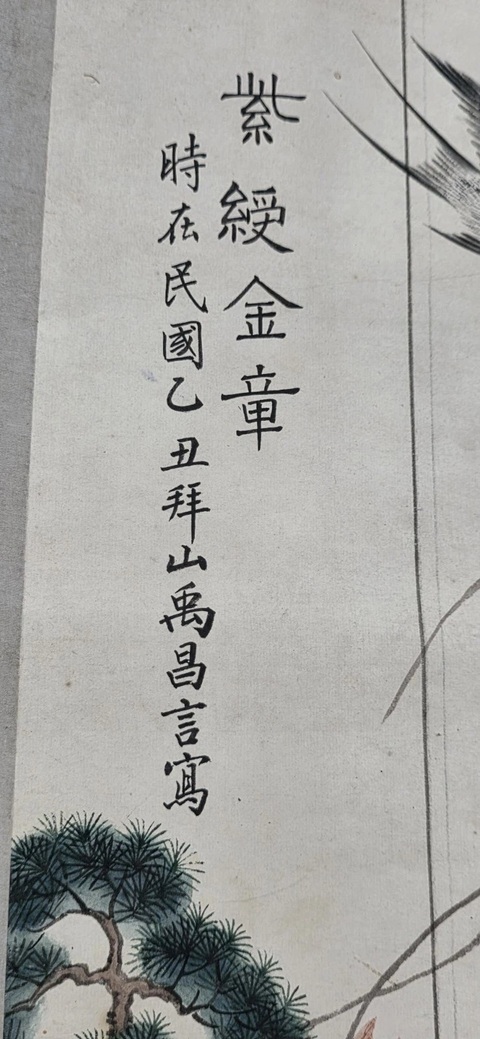 紫綬金章
時在民國乙丑拜山禹昌言寫